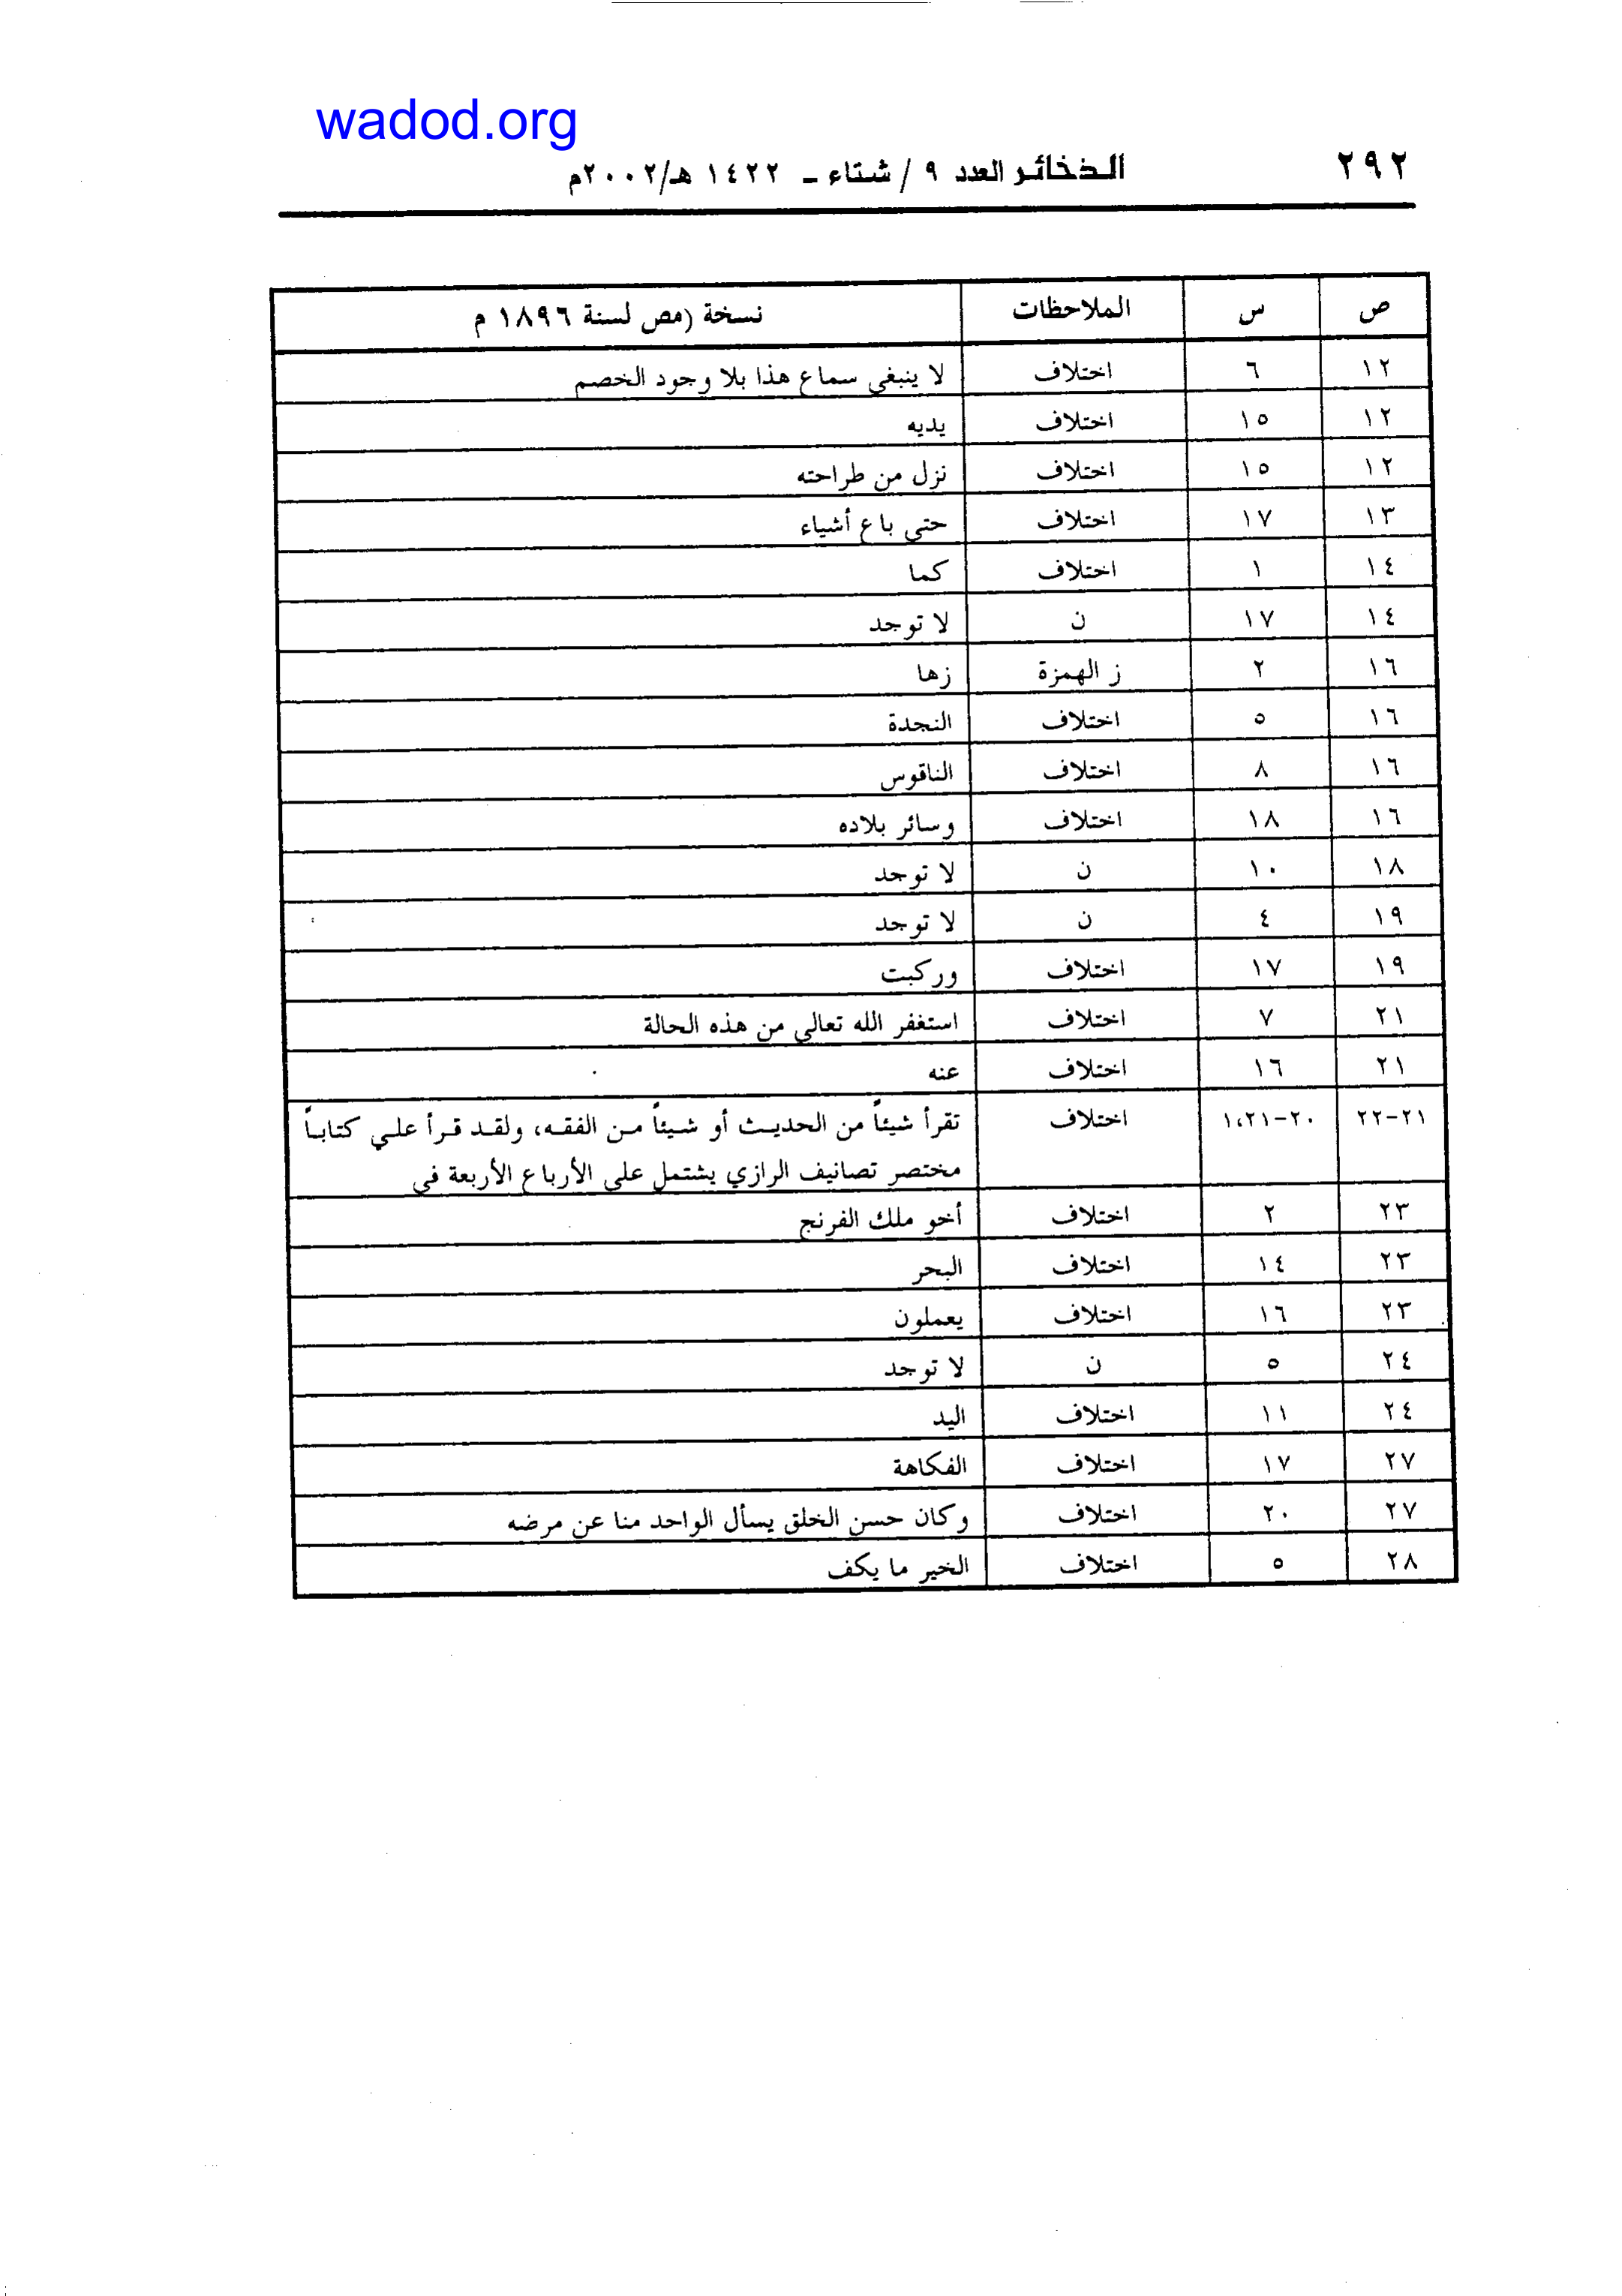 wadod.org
٢٩٢ الذخائر العدد ٩ / شتاء ـ ١٤٢٢ هـ/٢٠٠٢م
ص س الملاحظات نسخة (مص لسنة ١٨٩٦ م
١٢ ٦ اختلاف لا ينبغي سماع هذا بلا وجود الخصم
١٢ ١٥ اختلاف يديه
١٢ ١٥ اختلاف نزل من طراحته
١٣ ١٧ اختلاف حتى باع أشياء
١٤ ١ اختلاف كما
١٤ ١٧ ن لا توجد
١٦ ٢ ز الهمزة زها
١٦ ٥ اختلاف النجدة
١٦ ٨ اختلاف الناقوس
١٦ ١٨ اختلاف وسائر بلاده
١٨ ١٠ ن لا توجد
١٩ ٤ ن لا توجد
١٩ ١٧ اختلاف وركبت
٢١ ٧ اختلاف استغفر الله تعالى من هذه الحالة
٢١ ١٦ اختلاف عنه
٢١-٢٢ ٢٠-١،٢١ اختلاف تقرأ شيئاً من الحديث أو شيئاً من الفقه، ولقد قرأ علي كتاباً
مختصر تصانيف الرازي يشتمل على الأرباع الأربعة في
٢٣ ٢ اختلاف أخو ملك الفرنج
٢٣ ١٤ اختلاف البحر
٢٣ ١٦ اختلاف يعملون
٢٤ ٥ ن لا توجد
٢٤ ١١ اختلاف اليد
٢٧ ١٧ اختلاف الفكاهة
٢٧ ٢٠ اختلاف وكان حسن الخلق يسأل الواحد منا عن مرضه
٢٨ ٥ اختلاف الخير ما يكف